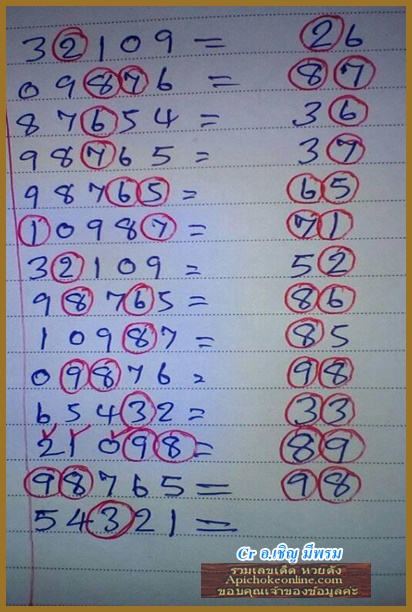 32109 = 26
09876 = 87
87654 = 36
98765 = 37
98765 = 65
10987 = 71
32109 = 52
98765 = 86
10987 = 85
09876 = 98
65432 = 33
21098 = 89
98765 = 98
54321 =
Cr อ.เชิญ มีพรม
รวมเลขเด็ด หวยดัง
Apichokeonline.com
ขอบคุณเจ้าของข้อมูลค่ะ